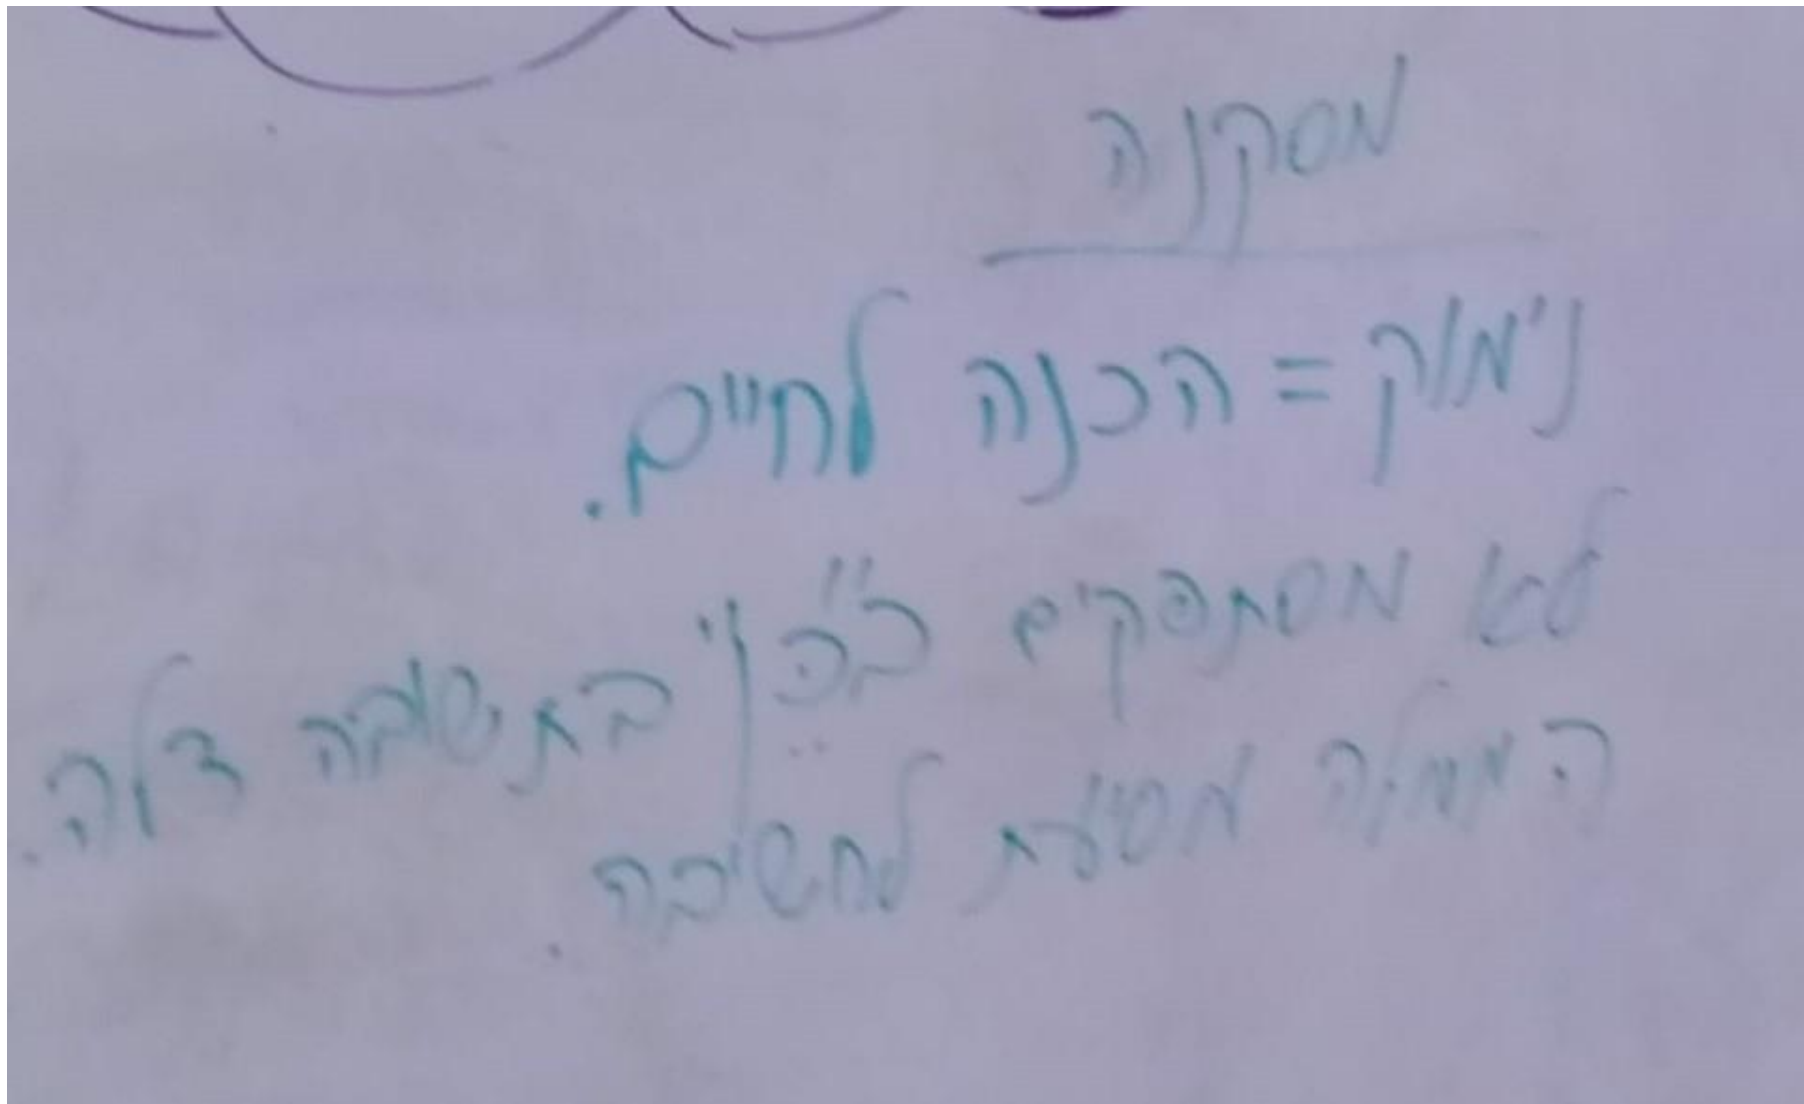 מסקנה
נימוק = הכנה לחיים.
לא מסתפקים ב"כן" בתשובה דלה.
מסייעת לחשיבה.